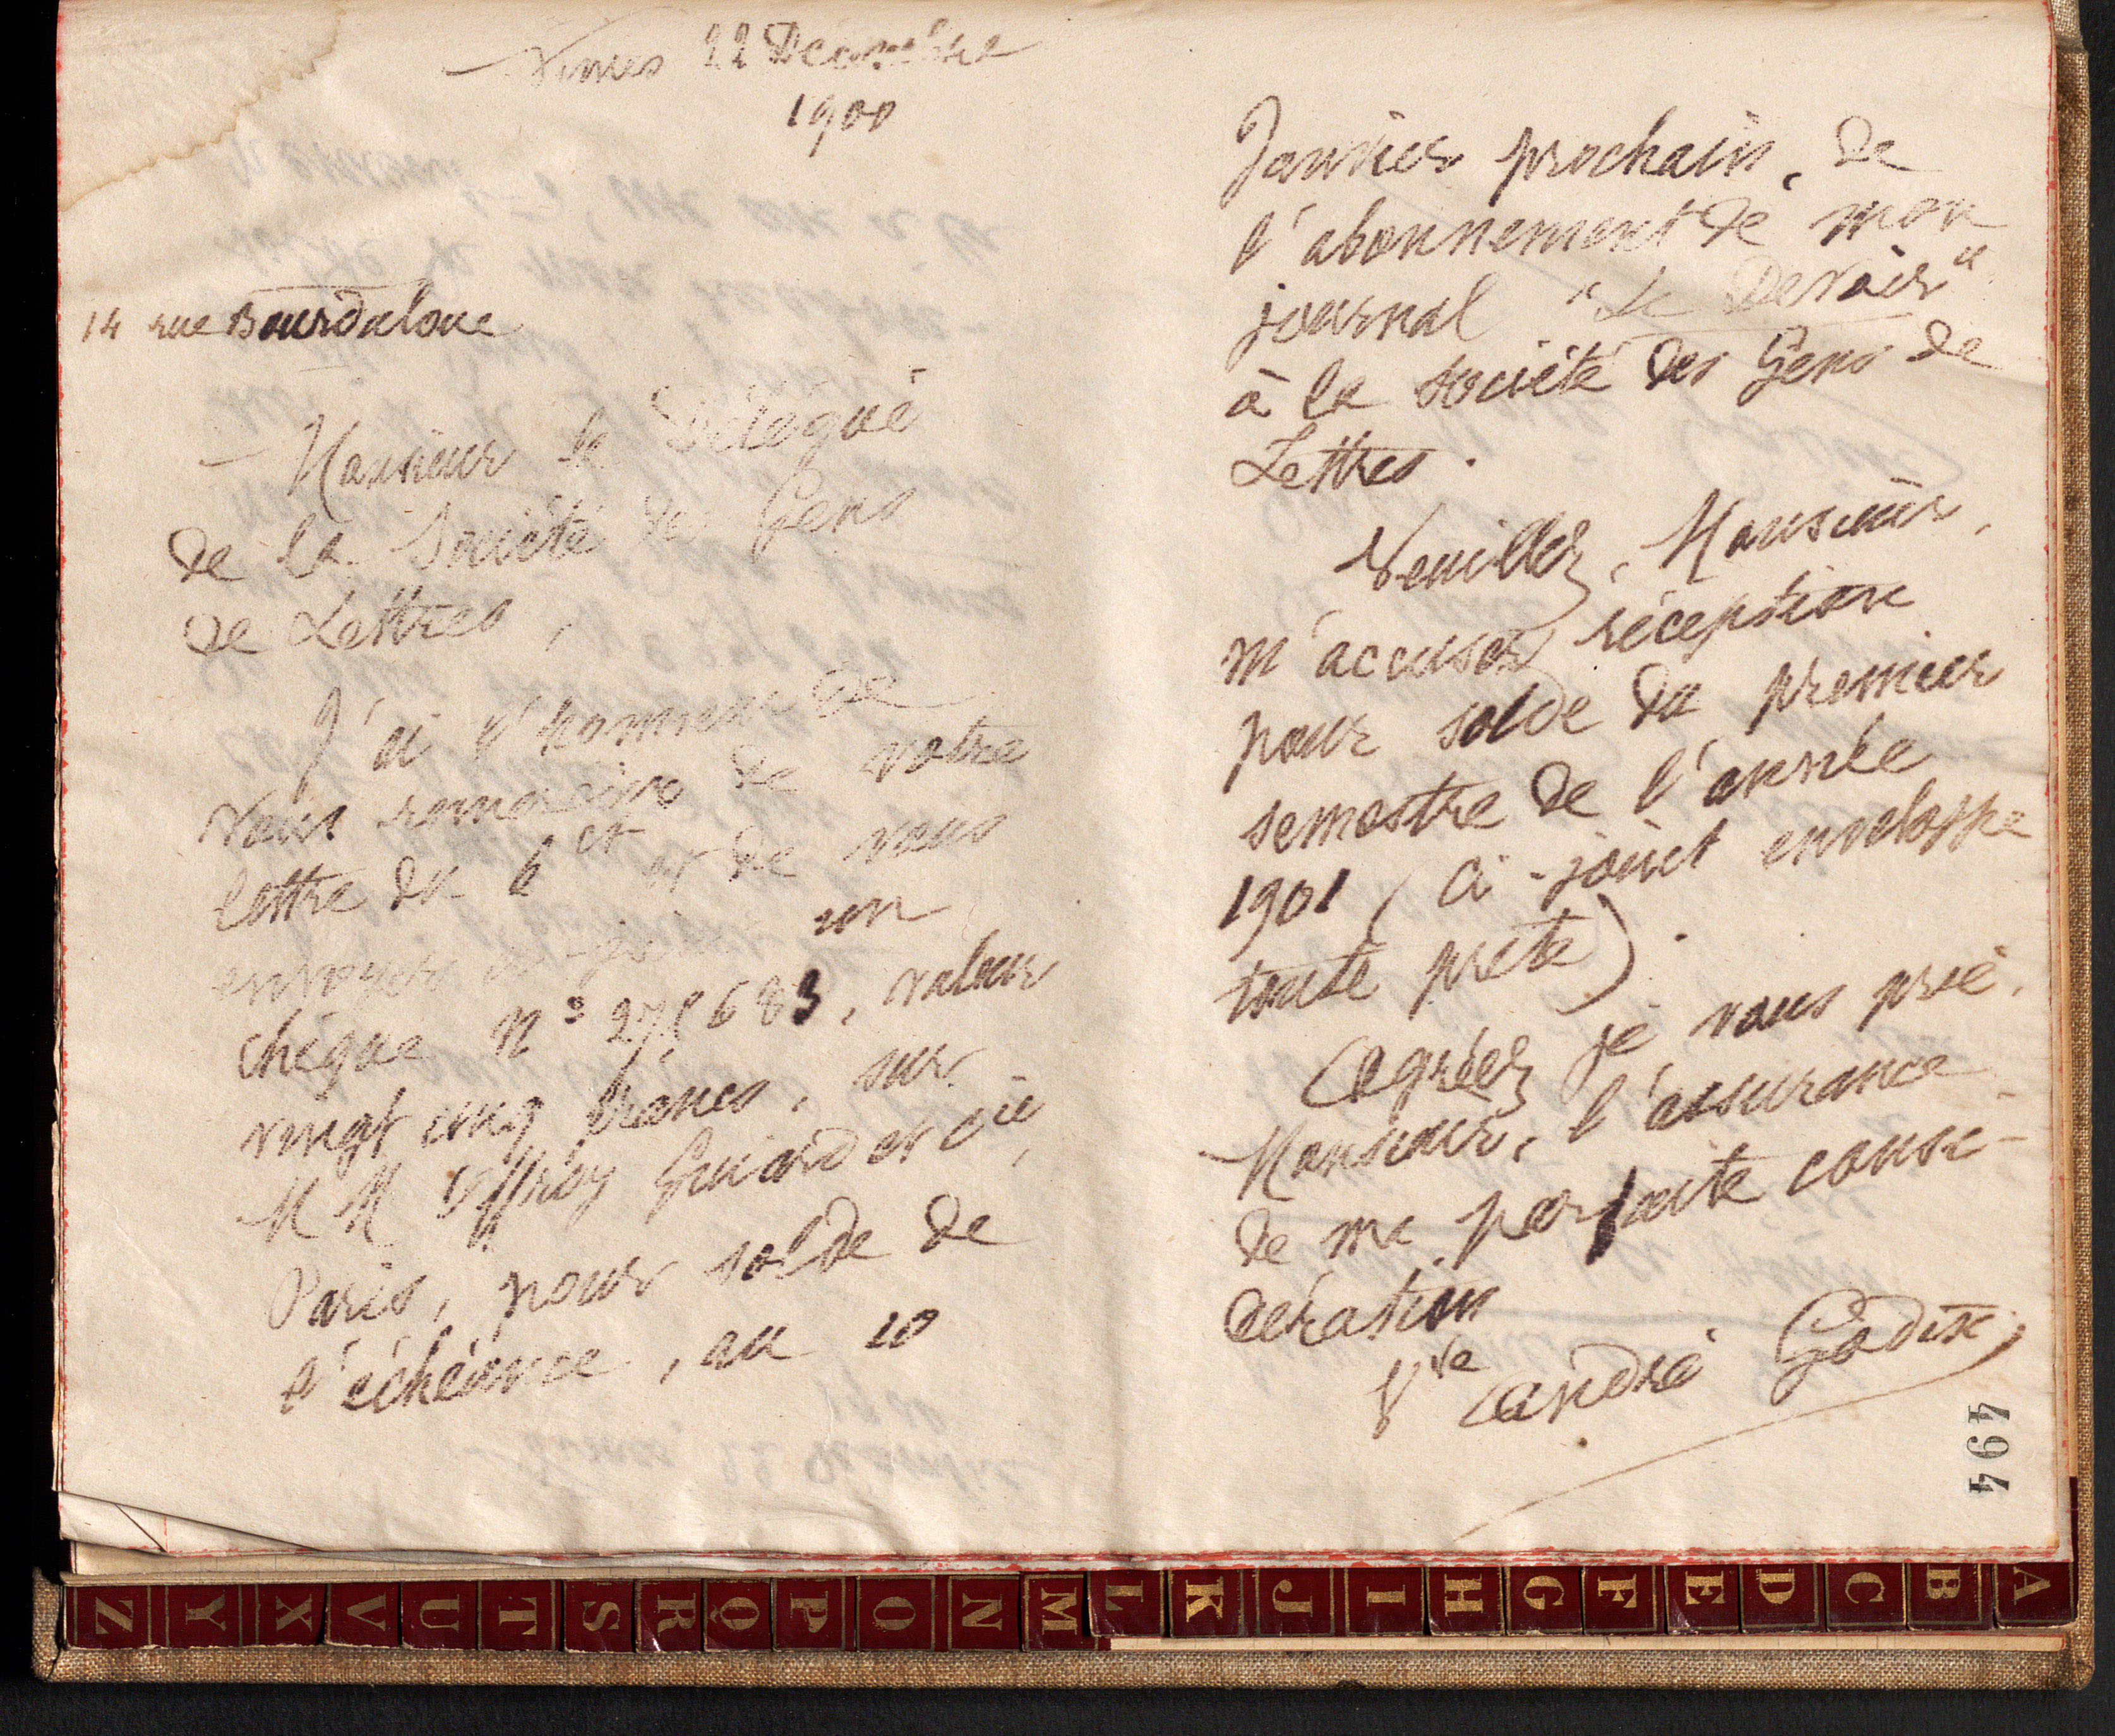 Nimes 22 Décembre
1900
14 rue Bourdaloue
Monsieur le Délégué
de la Société des Gens
de Lettres,
J'ai l'honneur de
vous remercier de votre
lettre du 6 ct et de vous
envoyer ci-joint un
chèque n° 278683, valeur
vingt cinq francs, sur
MM Offroy Guiard et Cie,
Paris, pour solde de
l'échéance, au 10
Janvier prochain, de
l'abonnement de mon
journal "Le Devoir"
à la société des Gens de
Lettres.
Veuillez, Monsieur,
m'accuser réception
pour solde du premier
semestre de l'année
1901 (Ci-joint enveloppe
toute prête).
Agréez je vous prie,
Monsieur, l'assurance
de ma parfaite consi-
dération
Vve André Godin
494
Z Y X V U T S R Q P O N M L K J I H G F E D C B A